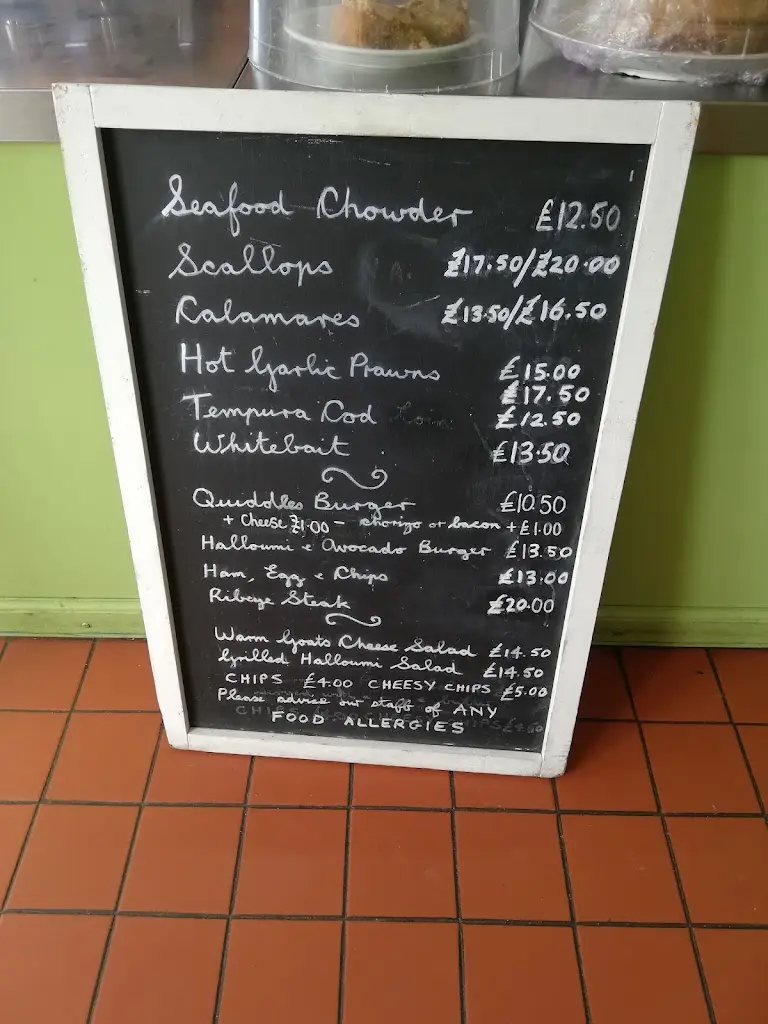 Seafood Chowder £12.50
Scallops £17.50/£20.00
Calamares £13.50/£16.50
Hot Garlic Prawns £15.00
£17.50
Tempura Cod £12.50
Whitebait £13.50
Quiddles Burger £10.50
+ Cheese £1.00 - chorizo or bacon + £1.00
Halloumi & Avocado Burger £13.50
Ham, Egg & Chips £13.00
Ribeye Steak £20.00
Warm Goats Cheese Salad £14.50
Grilled Halloumi Salad £14.50
CHIPS £4.00 CHEESY CHIPS £5.00
Please advise our staff of ANY
FOOD ALLERGIES